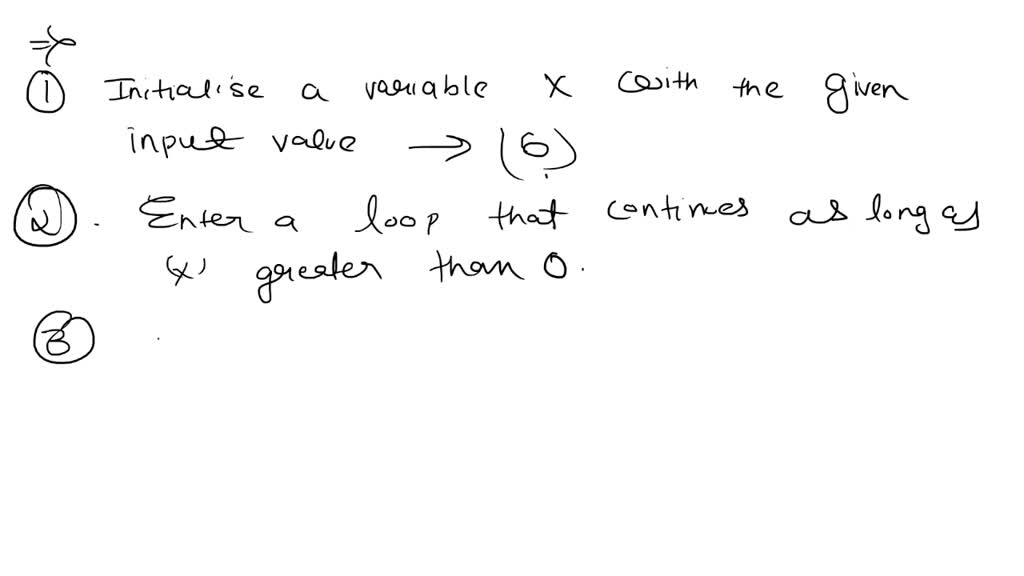 ⇒
① Initialise a variable x with the given
input value → (6)
②. Enter a loop that continues as long as
'x' greater than 0.
③